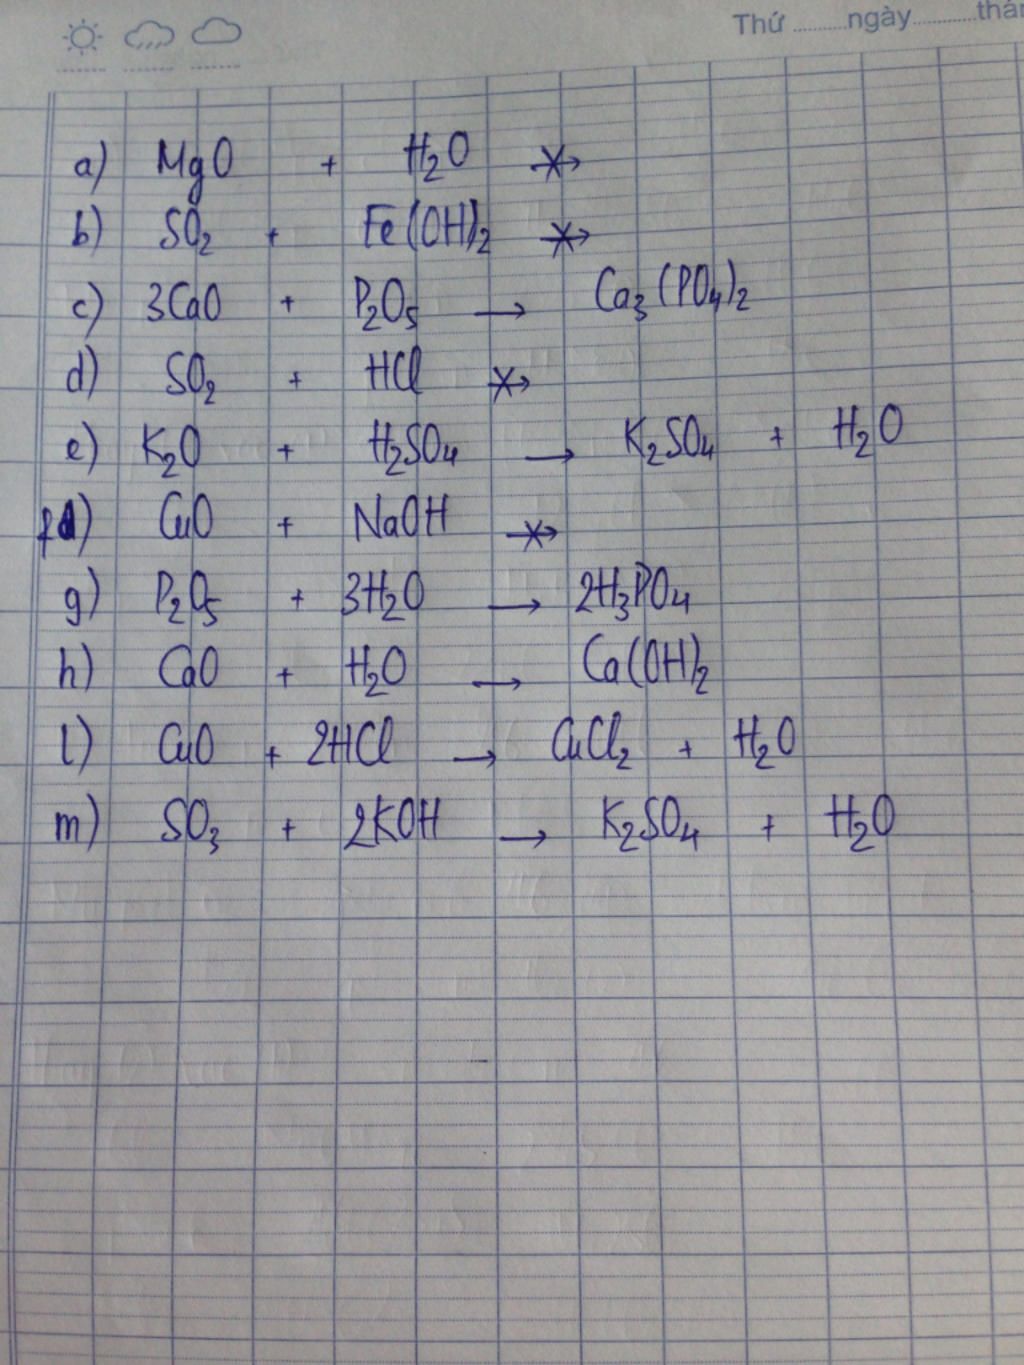 Thứ ........ngày..........thán
a) MgO + H₂O ↛
b) SO₂ + Fe(OH)₂ ↛
c) 3CaO + P₂O₅ → Ca₃(PO₄)₂
d) SO₂ + HCl ↛
e) K₂O + H₂SO₄ → K₂SO₄ + H₂O
f) CuO + NaOH ↛
g) P₂O₅ + 3H₂O → 2H₃PO₄
h) CaO + H₂O → Ca(OH)₂
l) CuO + 2HCl → CuCl₂ + H₂O
m) SO₃ + 2KOH → K₂SO₄ + H₂O